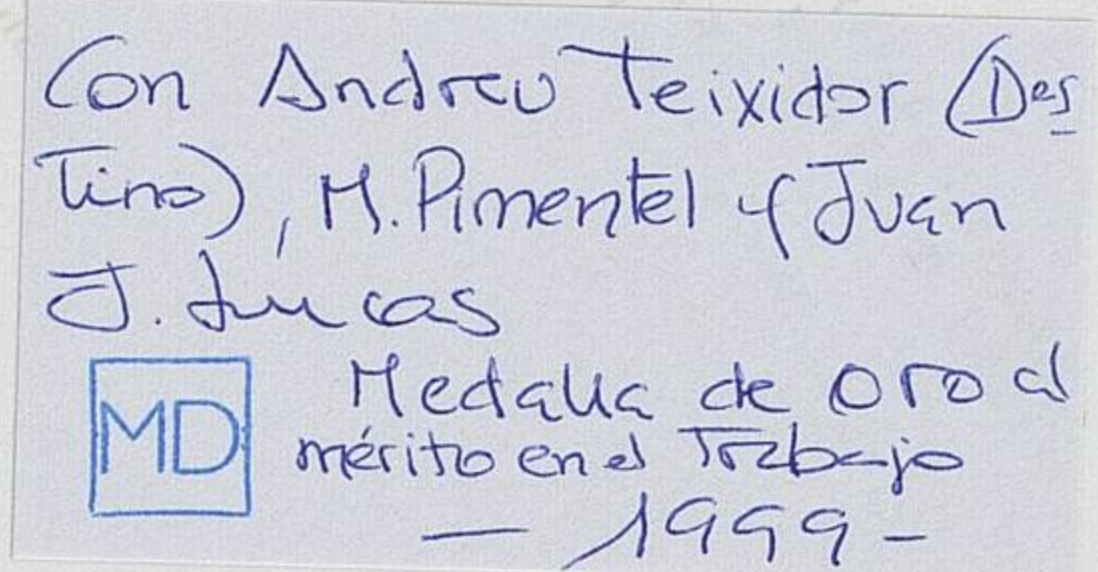 Con Andreu Teixidor (Des
tino), M. Pimentel y Juan
J. Lucas
MD
Medalla de oro al
mérito en el Trabajo
— 1999 -